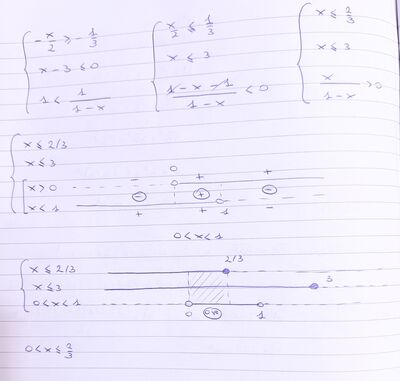 -x/2 ≥ -1/3
x - 3 ≤ 0
1 < 1/(1-x)
x/2 ≤ 1/3
x ≤ 3
(1-x-1)/(1-x) < 0
x ≤ 2/3
x ≤ 3
x/(1-x) > 0
x ≤ 2/3
x ≤ 3
0
x > 0 + +
- + -
x < 1 1
+ + -
0 < x < 1
2/3
x ≤ 2/3
x ≤ 3 3
0 < x < 1
0 OK 1
0 < x ≤ 2/3